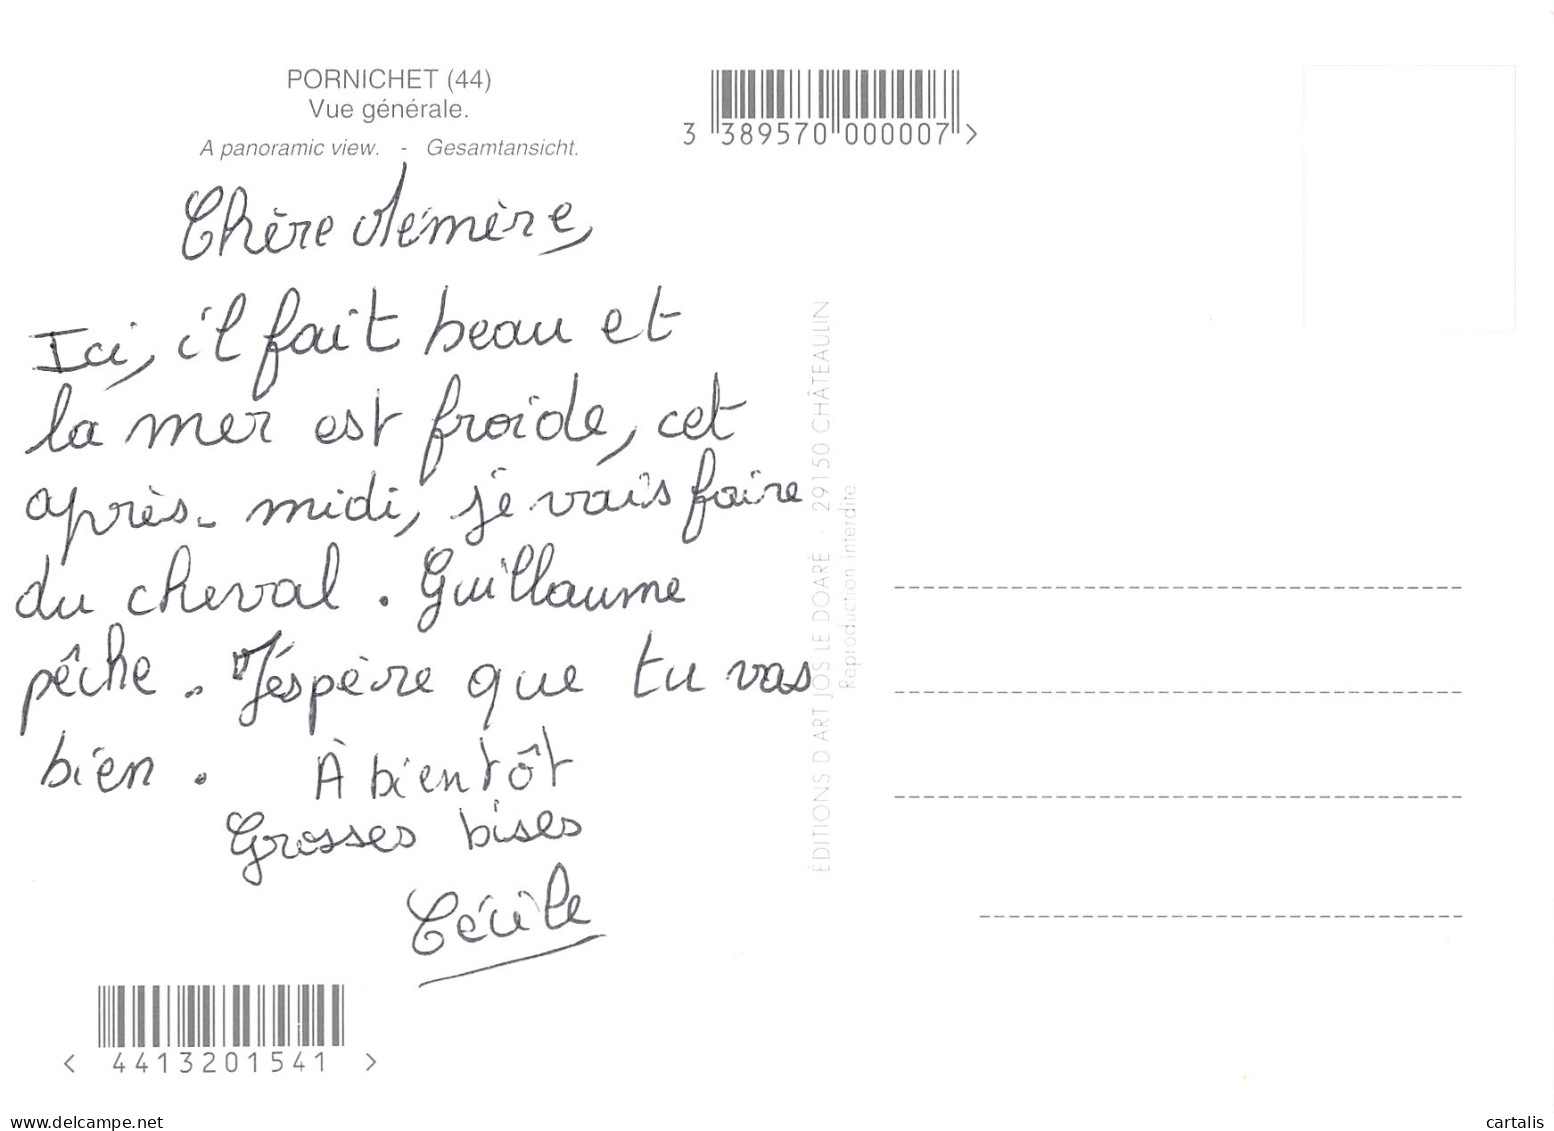 PORNICHET (44)
Vue générale.
A panoramic view. - Gesamtansicht.
3 389570 000007 >
Chère Mémère,
Ici, il fait beau et
la mer est froide, cet
après-midi, je vais faire
du cheval. Guillaume
pêche. J'éspère que tu vas
bien. À bientôt
Grosses bises
Cécile
ÉDITIONS D'ART JOS LE DOARÉ - 29150 CHÂTEAULIN
Reproduction interdite
< 4413201541 >
www.delcampe.net
cartalis